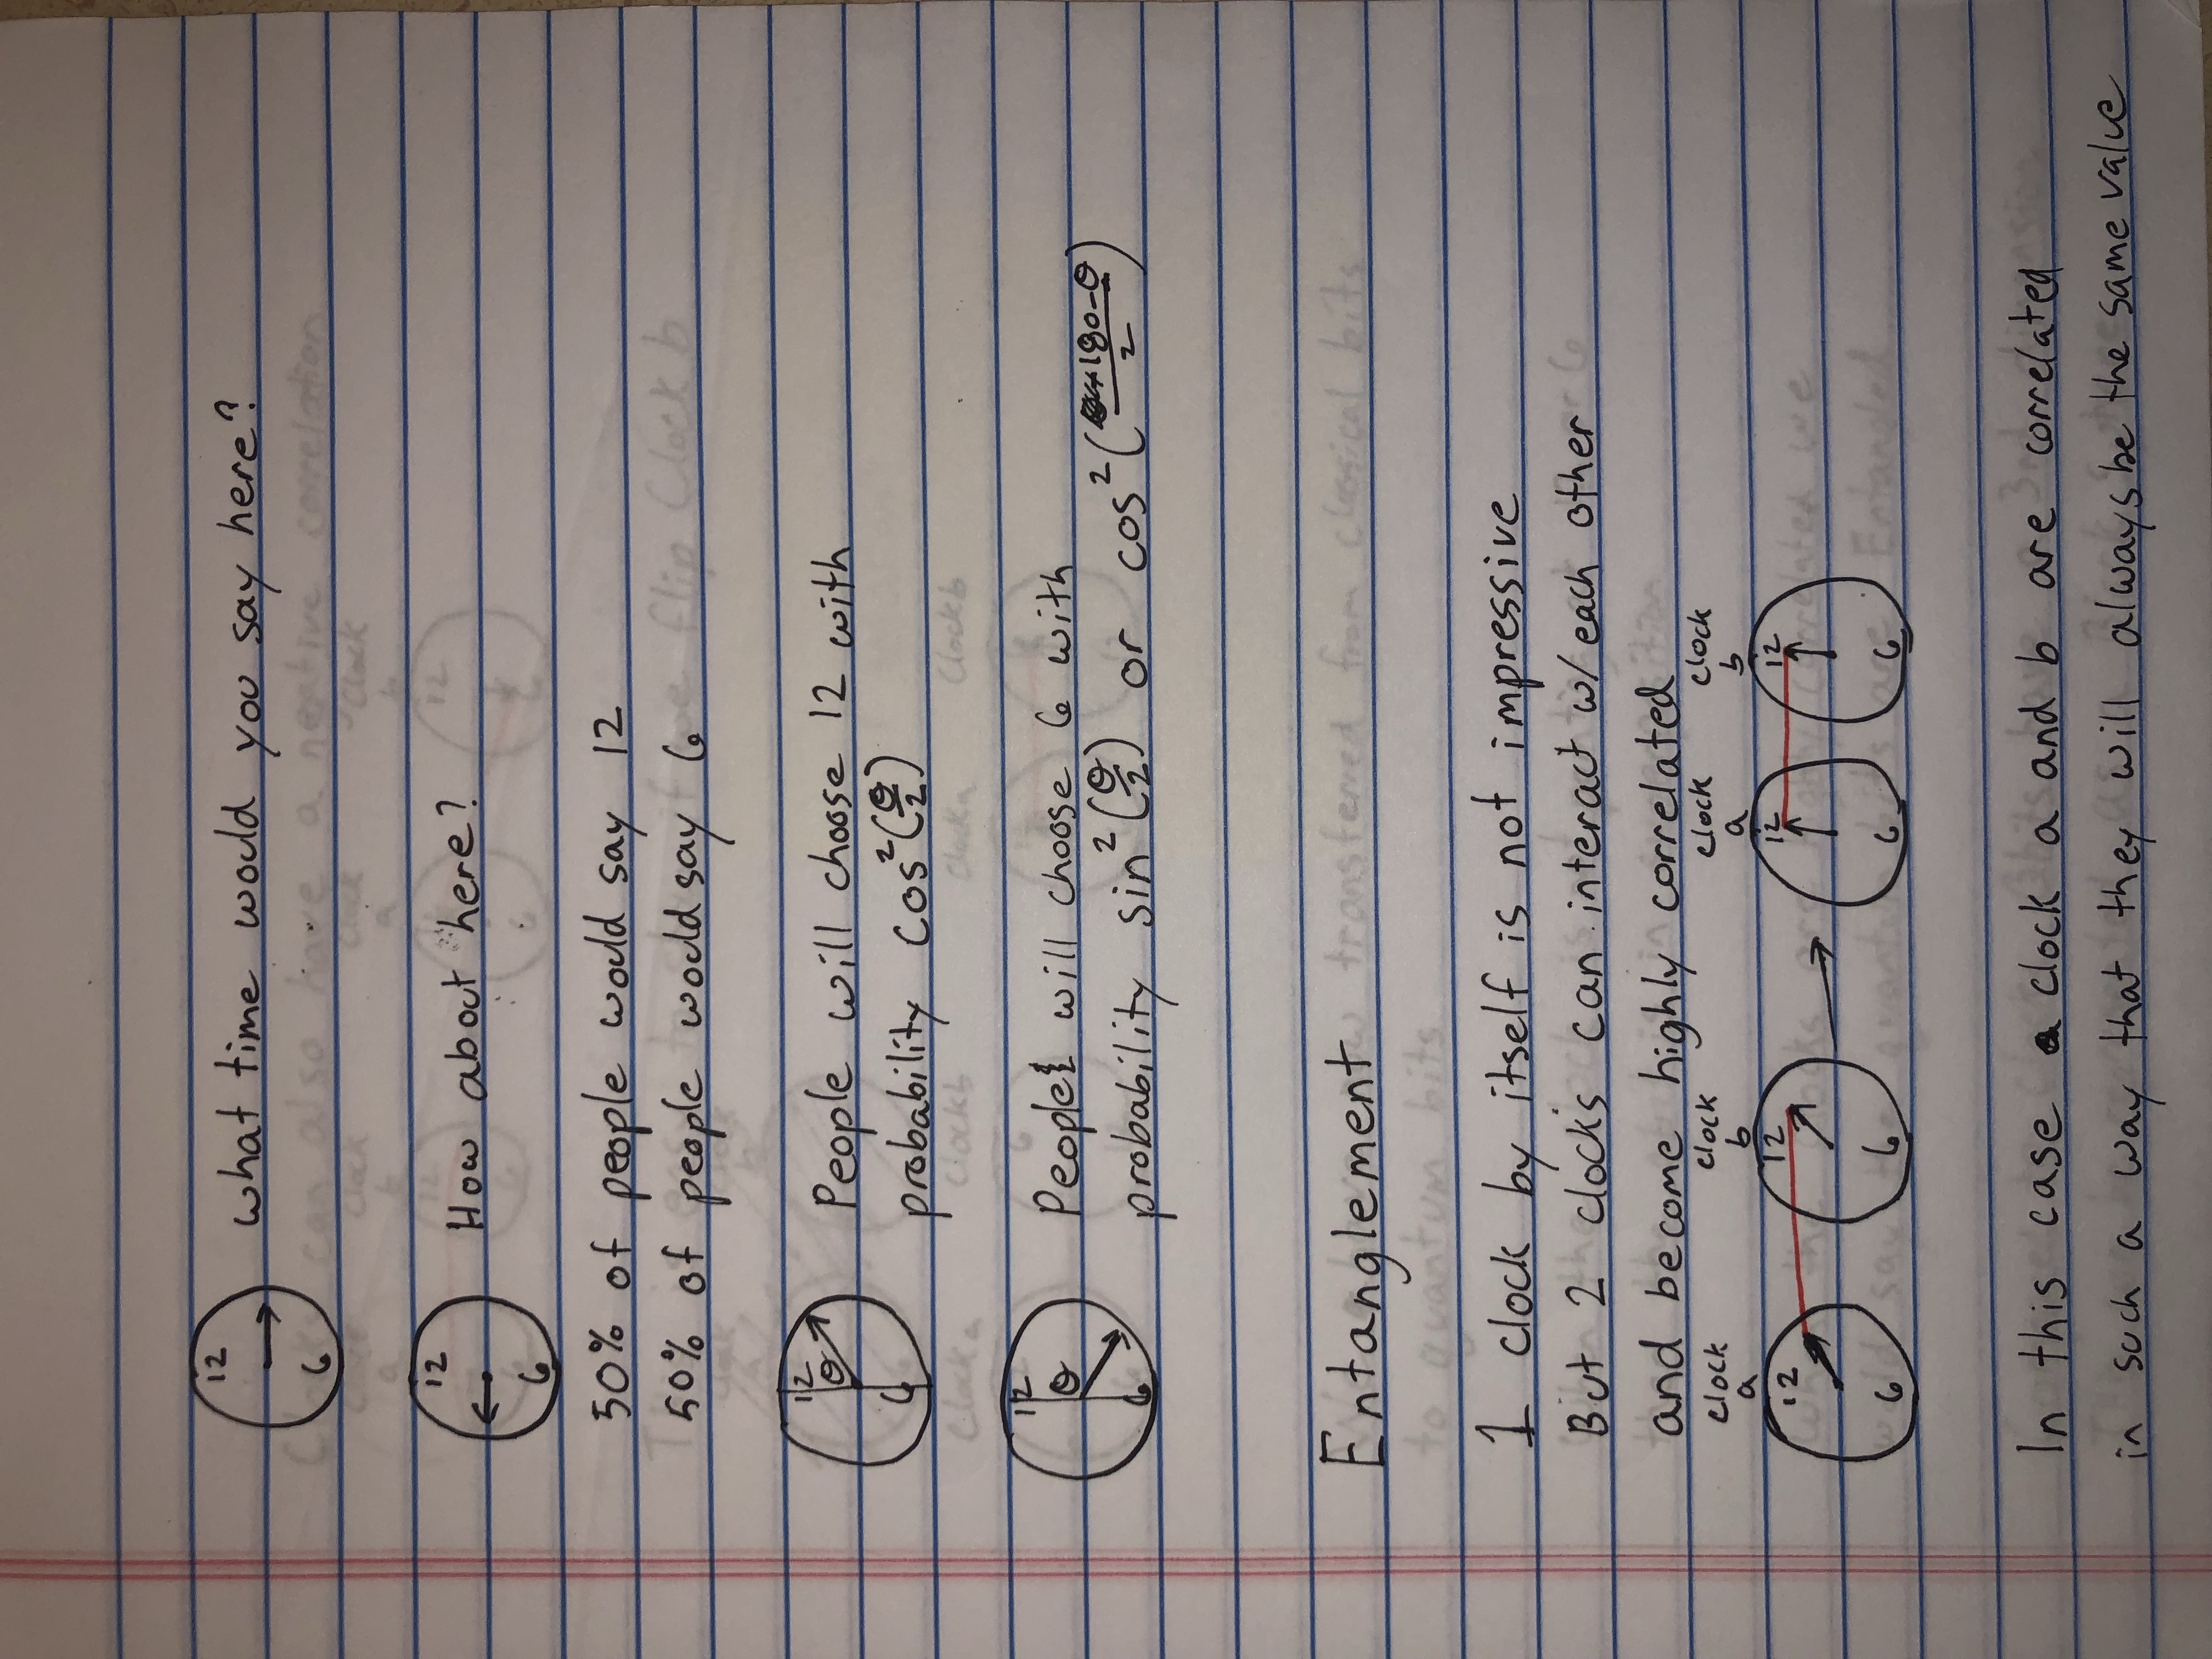 12
what time would you say here?
6
12
How about here?
6
50% of people would say 12
50% of people would say 6
12
θ
People will choose 12 with
6
probability cos²(θ/2)
12
θ
People will choose 6 with
6
probability sin²(θ/2) or cos²((180-θ)/2)
Entanglement
1 clock by itself is not impressive
But 2 clocks can interact w/ each other
and become highly correlated
clock clock clock clock
a b a b
12 12 12 12
6 6 6 6
In this case clock a and b are correlated
in such a way that they will always be the same value